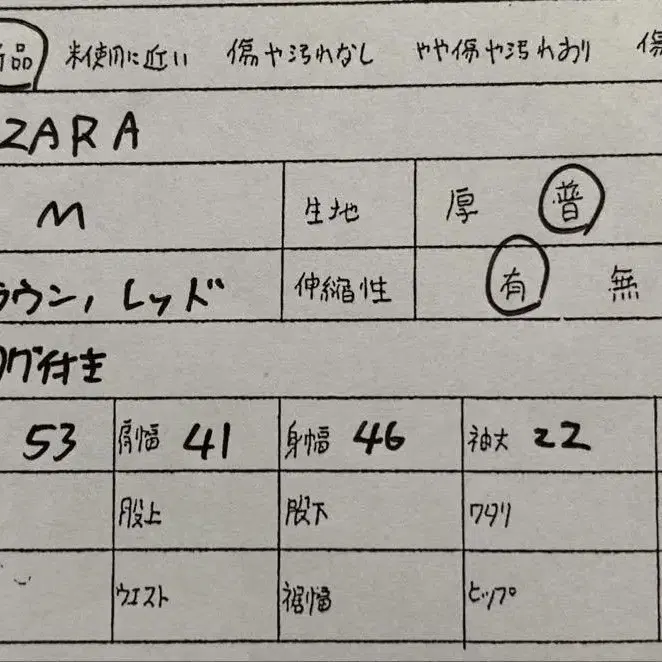 新品 未使用に近い 傷や汚れなし やや傷や汚れあり 傷
ZARA
M 生地 厚 普
ラウン, レッド 伸縮性 有 無
タグ付き
53 肩幅 41 身幅 46 袖丈 22
股上 股下 ワタリ
ウエスト 裾幅 ヒップ